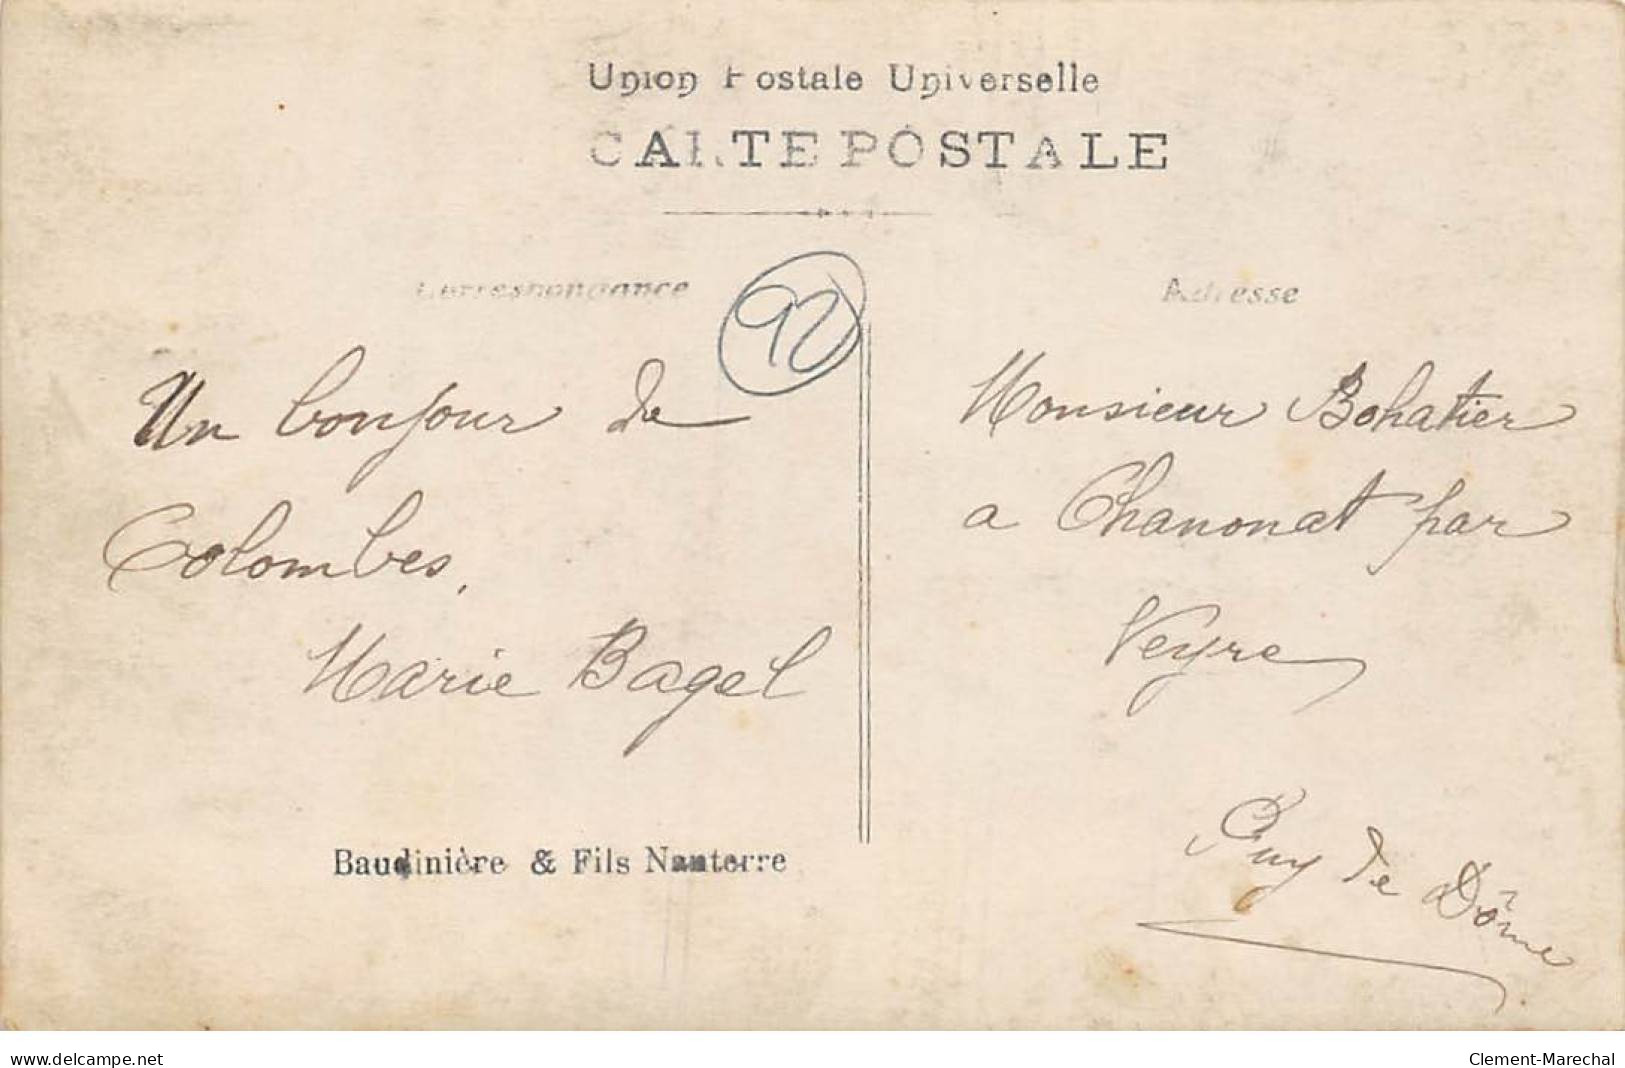 Union Postale Universelle
CARTE POSTALE
Correspondance
Adresse
92
Un bonjour de
Colombes.
Marie Bagel
Monsieur Bohatier
a Chanonat par
Veyre
Puy de Dôme
Baudinière & Fils Nanterre
www.delcampe.net
Clement-Marechal